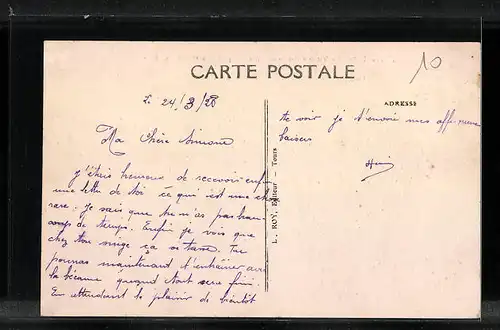 CARTE POSTALE
10
ADRESSE
L. ROY, Editeur - Tours
24/3/28
Ma Chère Simone
j'étais heureux de recevoir enfin
une lettre de toi ce qui est une chose
rare: je sais que tu n'as pas beau-
coup de temps. Enfin je vois que
chez ton ça se tasse. Tu
pourras maintenant t'entraîner avec
la bécane quand tout sera fini.
En attendant le plaisir de bientôt
te voir je t'envoie mes
baisers